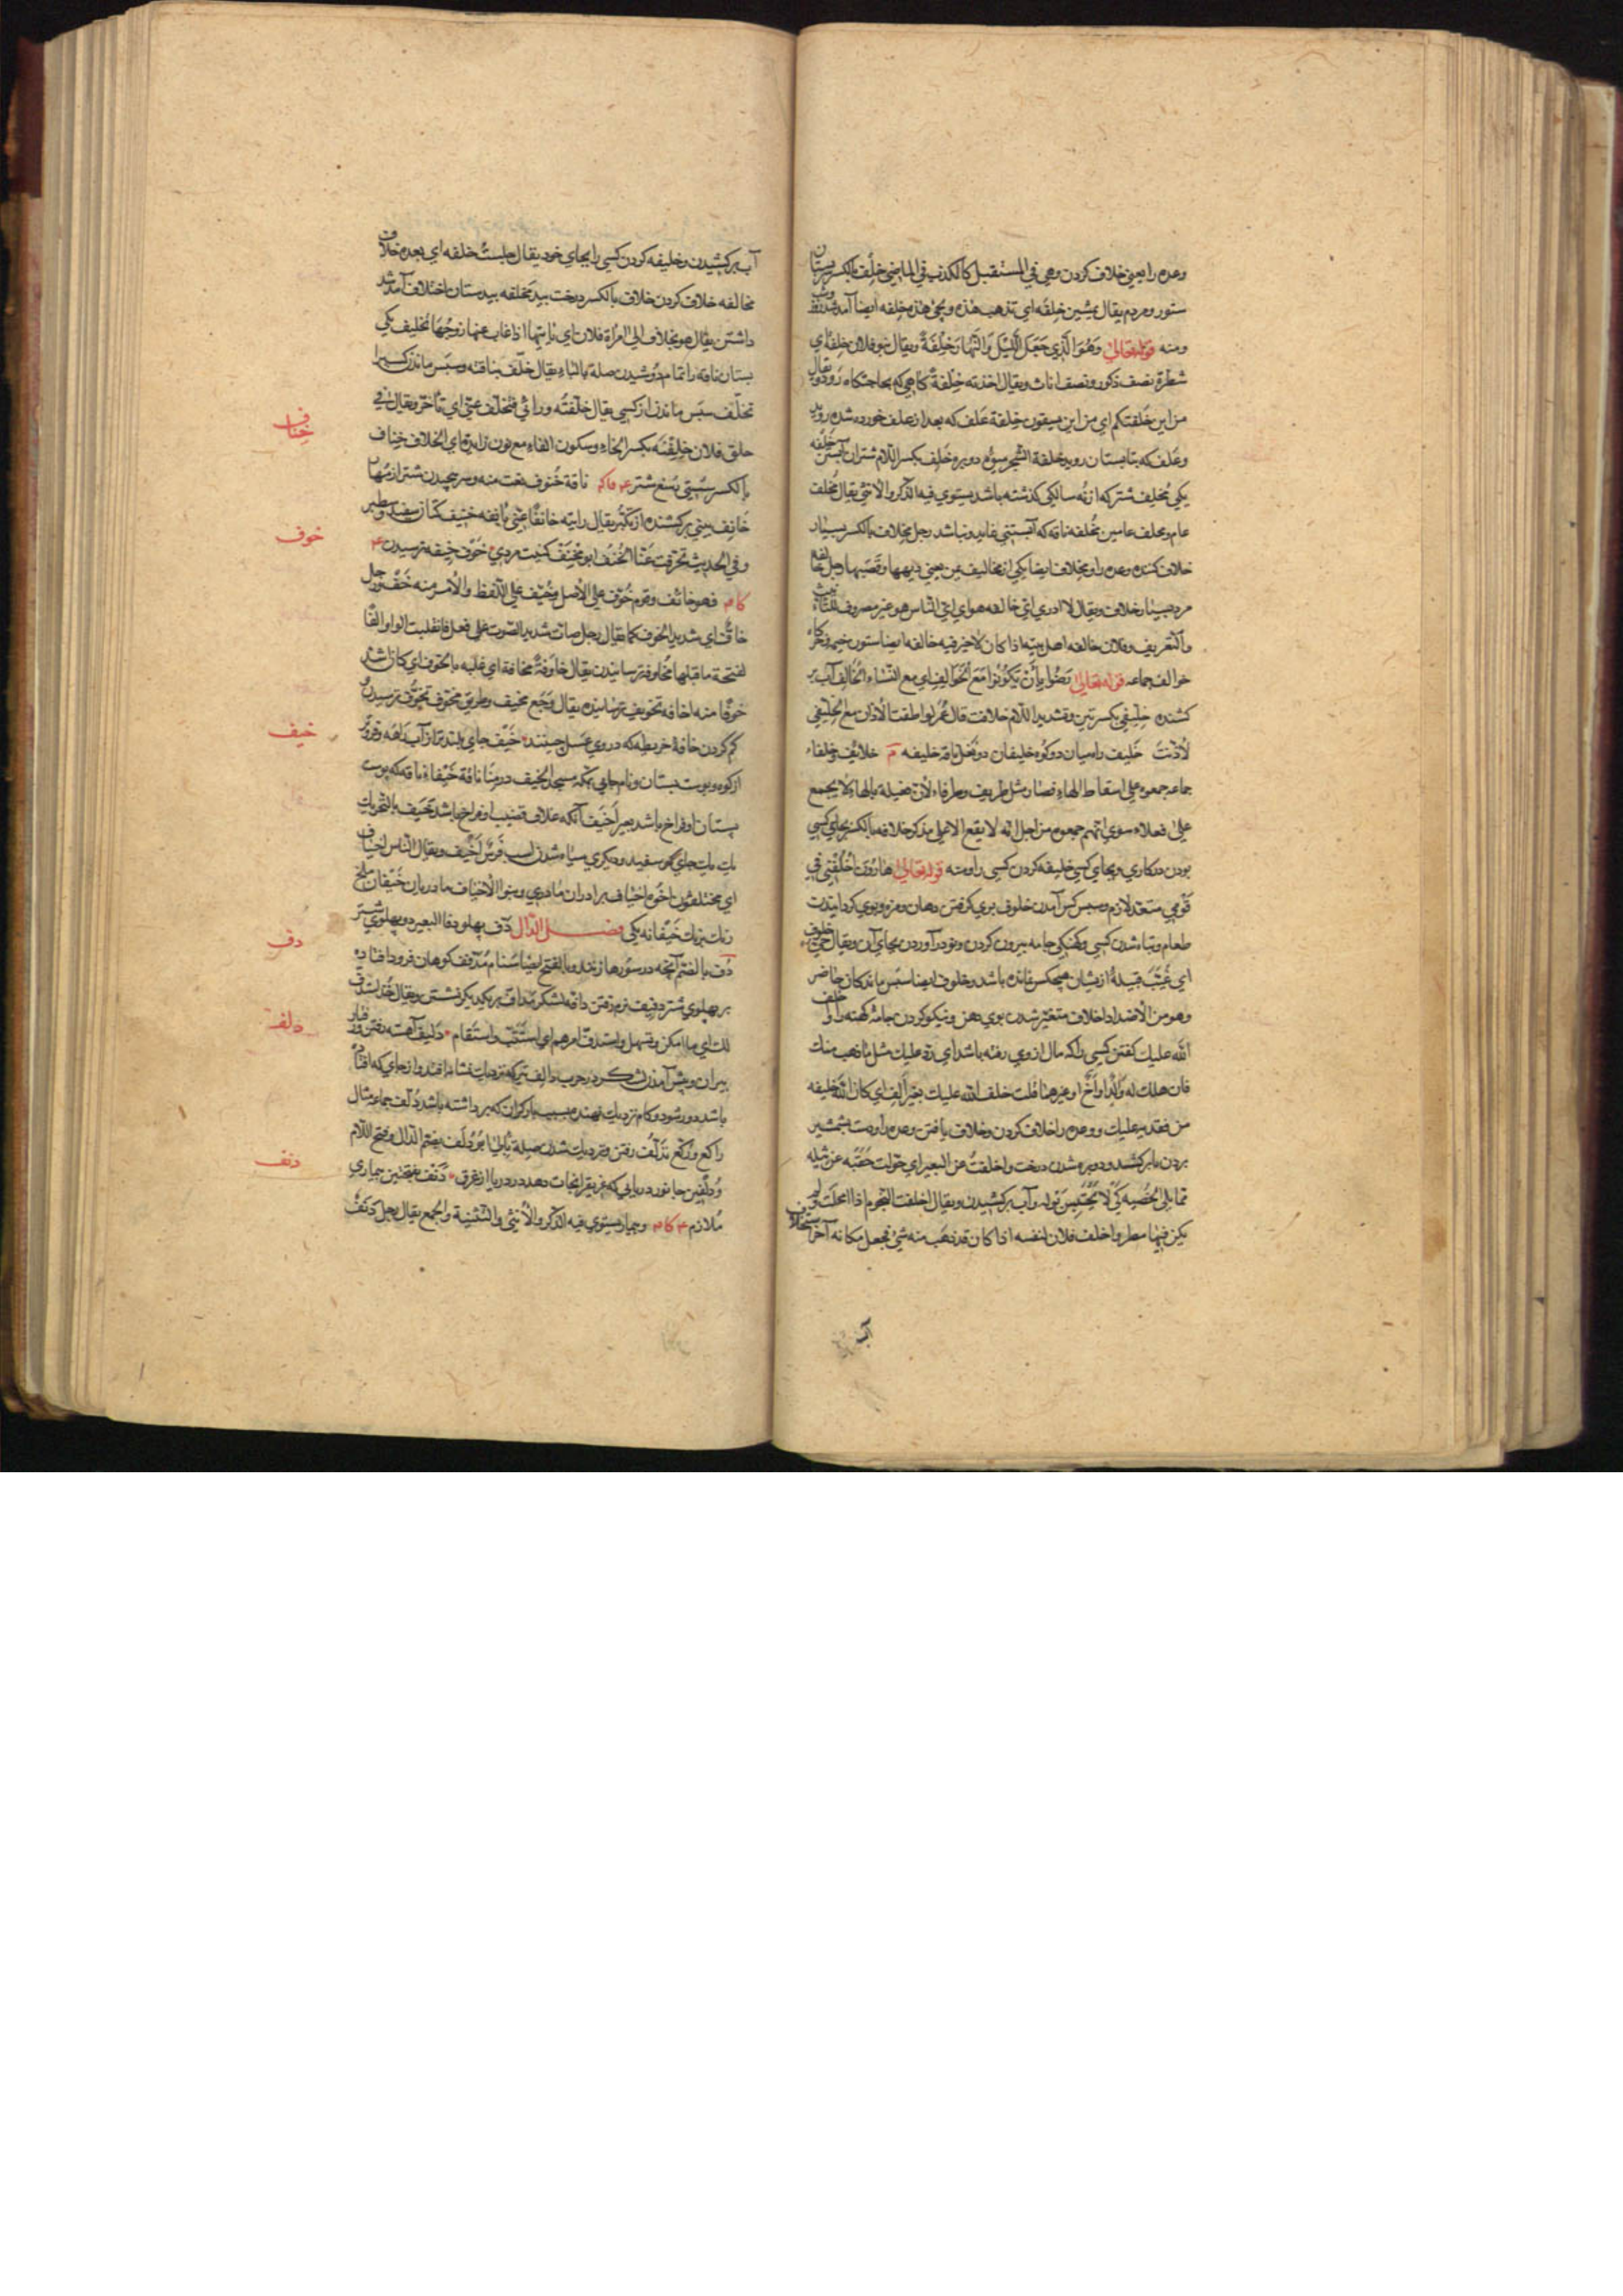 وعده را یعنی خلاف کردن وهی فی المستقبل کالکذب فی الماضی خلف بالکسر پستان
ستور ومردم یقال یمشین خلفه ای تذهب هذه وتجیٔ هذه خلفه ایضا آمد شد
ومنه قوله تعالی وَهُوَ الَّذِي جَعَلَ اللَّيْلَ وَالنَّهَارَ خِلْفَةً ویقال بنو فلان خلفة ای
شطرة نصف ذکور ونصف اناث ویقال اخذته خلفة کاهی که بحاجتکاه رود ویقال
من این خلفتکم ای من این یستقون خلفة علف که بعد از علف خورده شده روید
وعلف که بتابستان روید خلفة الشجر میوه دوبره خلف بکسر اللام شتران آبستن خلفه
یکی مخلف شتر که از نه سالکی کذشته باشد یستوی فیه الذکر والانثی یقال مخلف
عام ومخلف عامین مخلفه ناقه که آبستنی نماید ونباشد رجل مخلاف بالکسر بسیار
خلاف کننده وعده را ومخلاف ایضا یکی از مخالیف یمن یعنی دیهها وقصبها رجل خالفة
مرد بسیار خلاف ویقال لا ادری ای خالفه هو ای ای الناس هو غیر مصروف للتانیث
والتعریف وفلان خالفه اهل بیته اذا کان لا خیر فیه خالفه ایضا ستون خیمه وخرکاه
خوالف جماعه قوله تعالی رَضُوا بِأَنْ يَكُونُوا مَعَ الْخَوَالِفِ ای مع النساء الخالف آب بر
کشنده خلیفی بکسرتین وتشدید اللام خلافت قال عمر لو اطقت الاذان مع الخلیفی
لاذنت خلیف راه میان دو کوه خلیفان دو بغل ناقه خلیفه م خلائف وخلفاء
جماعه جمعوه علی اسقاط الهاء فصار مثل ظریف وظرفاء لان فعیلة بالهاء لا یجمع
علی فعلاء سوی انهم جمعوه من اجل انه لا یقع الا علی مذکر خلافه بالکسر بجای کسی
بودن در کاری وبجای کسی خلیفه کردن کسی را ومنه قوله تعالی هَارُونَ اخْلُفْنِي فِي
قَوْمِي متعد لازم وسپس کس آمدن خلوف بوی کرفتن دهان ومزه وبوی کردانیدن
طعام وتباه شدن کسی وکهنکی جامه بیرون کردن ونو درآوردن بجای آن ویقال حی خلوف
ای غیب قبیلهٔ از یشان هیچکس نمانده باشد وخلوف ایضا سپس ماندکان حاضر
وهو من الاضداد اخلاف متغیر شدن بوی دهن ونیکو کردن جامهٔ کهنه را واخلف
الله علیک کفتن کسی را که مال از وی رفته باشد ای رد علیک مثل ما ذهب منک
فان هلک له والد او اخ او غیرهما قلت خلف الله علیک بغیر الف ای کان الله خلیفه
من فقدته علیک ووعده را خلاف کردن وخلاف یافتن وعده را ودست بشمشیر
بردن تا بر کشد ودوبره شدن درخت واخلفت عن البعیر ای حولت حقبه عن ثیله
مما یلی الخصیه کی لا یحتبس بوله وآب بر کشیدن ویقال اخلفت النجوم اذا امحلت ولم
یکن فیها مطر واخلف فلان لنفسه اذا کان قد ذهب منه شیٔ فجعل مکانه آخر استخلاف
آب
آب بر کشیدن وخلیفه کردن کسی را بجای خود یقال جلست خلفه ای بعده خلاف
مخالفه خلاف کردن خلاف بالکسر درخت بید مخلفه بیدستان اختلاف آمد شد
داشتن یقال هو یخالف الی امراة فلان ای یاتیها اذا غاب عنها زوجها تخلیف یکی
پستان ناقه را تمام دوشیدن صلة بالباء یقال خلف بناقته وسپس ماندن کسیرا
تخلف سپس ماندن از کسی یقال خلفته ورائی فتخلف عنی ای تاخر ویقال فی
خلق فلان خلفنة بکسر الخاء وسکون الفاء مع نون زایدة ای الخلاف خناف
بالکسر سستی بند شتر ناقة خنوف نعت منه وسر پیچیدن شتر از مهار
خانف بینی بر کشنده از تکبر یقال رایته خانفا عنی بانفه خنیف کتان سفید وسطبر
وفی الحدیث تخرقت عنا الخنف ابو مخنف کنیت مردی خوف خیفه ترسیدن
فهو خائف وقوم خوف علی الاصل وخیف علی اللفظ والامر منه خف ورجل
خاف ای شدید الخوف کما یقال رجل صات شدید الصوت علی فعل فانقلبت الواو الفا
لفتحة ما قبلها مخاوفه ترسانیدن یقال خاوفه مخافة ای غلبه بالخوف ای کان اشد
خوفا منه اخافه تخویف ترسانیدن یقال وجع مخیف وطریق مخوف تخوف ترسیدن و
کم کردن خافة خریطه که در وی عسل چینند خیف جای بلندتر از آب راهه وفروتر
از کوه وپوست پستان ونام جای بمکه مسجد الخیف در منا ناقة خیفاء ناقه که پوست
پستان او فراخ باشد بعیر اخیف آنکه غلاف قضیب او فراخ باشد خیف بالتحریک
یک یک جای کبود سفید ودیکری سیاه شدن اسب فرس اخیف ویقال الناس اخیاف
ای مختلفون اخوة اخیاف برادران مادری وبنوا الاخیاف مادریان خیفان ملخ
رنک برنک خیفانه یکی فصل الدال دف پهلو دفا البعیر دو پهلوی شتر
دف بالضم آنچه در سورها زنند وبالفتح ایضا سنام مدفف کوهان فرود افتاده
بر پهلوی شتر دفیف نرم رفتن دافه لشکر تداف بر یکدیکر نشستن ویقال خذ ما استدف
لک ای ما امکن وتسهل واستدف امرهم ای استتب واستقام دلیف آهسته رفتن ورفتار
پیران وپیش آمدن لشکر در حرب دالف تیر که نزدیک نشانه افتد واز جای که افتاده
باشد دور شود وکام نزدیک نهنده بسبب بار کران که برداشته باشد دلف جماعه مثال
راکع ورکع تدلف رفتن ونزدیک شدن صلة بالی ابو دلف بضم الدال وفتح اللام
ودلفین جانور دریایی که غریق را نجات دهد در دریا از غرق دنف بفتحتین بیماری
ملازم وبیمار یستوی فیه الذکر والانثی والتثنیة والجمع یقال رجل دنف
خناف
خوف
خیف
دف
دلف
دنف